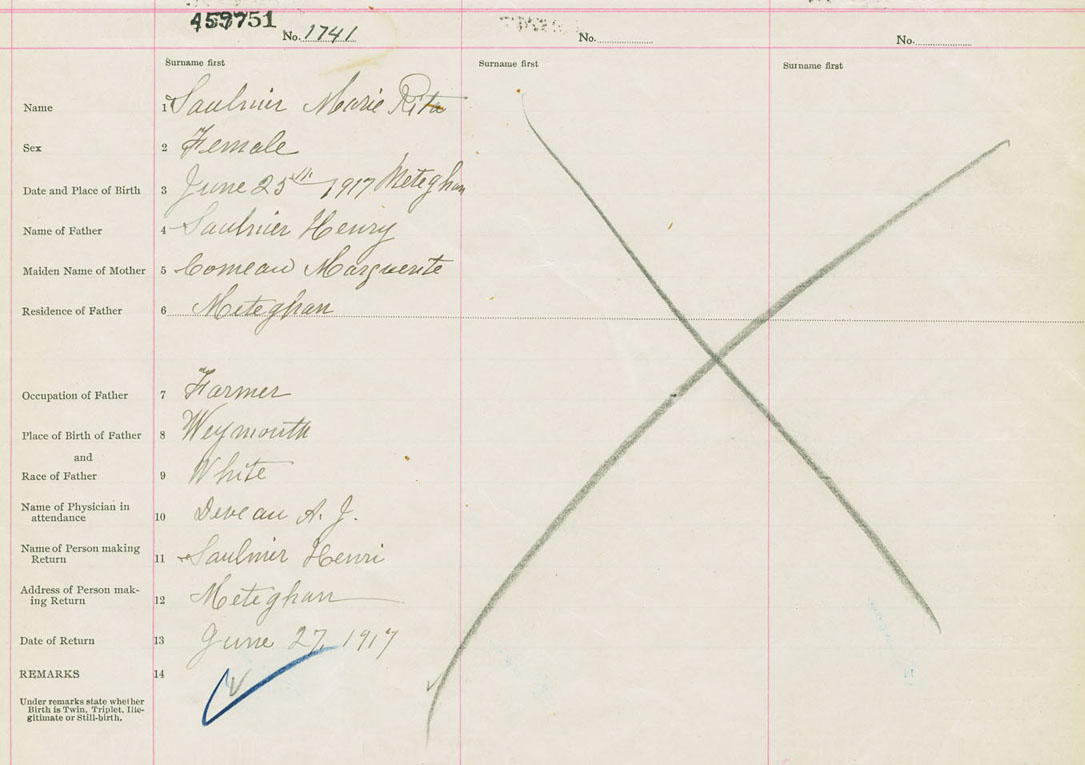 459751
No. 1741 No. No.
Surname first Surname first Surname first
Name 1 Saulnier Marie Rita
Sex 2 Female
Date and Place of Birth 3 June 25th 1917 Meteghan
Name of Father 4 Saulnier Henry
Maiden Name of Mother 5 Comeau Marguerite
Residence of Father 6 Meteghan
Occupation of Father 7 Farmer
Place of Birth of Father 8 Weymouth
and
Race of Father 9 White
Name of Physician in
attendance 10 Deveau A. J.
Name of Person making
Return 11 Saulnier Henri
Address of Person mak-
ing Return 12 Meteghan
Date of Return 13 June 27, 1917
REMARKS 14
Under remarks state whether
Birth is Twin, Triplet, Ille-
gitimate or Still-birth.